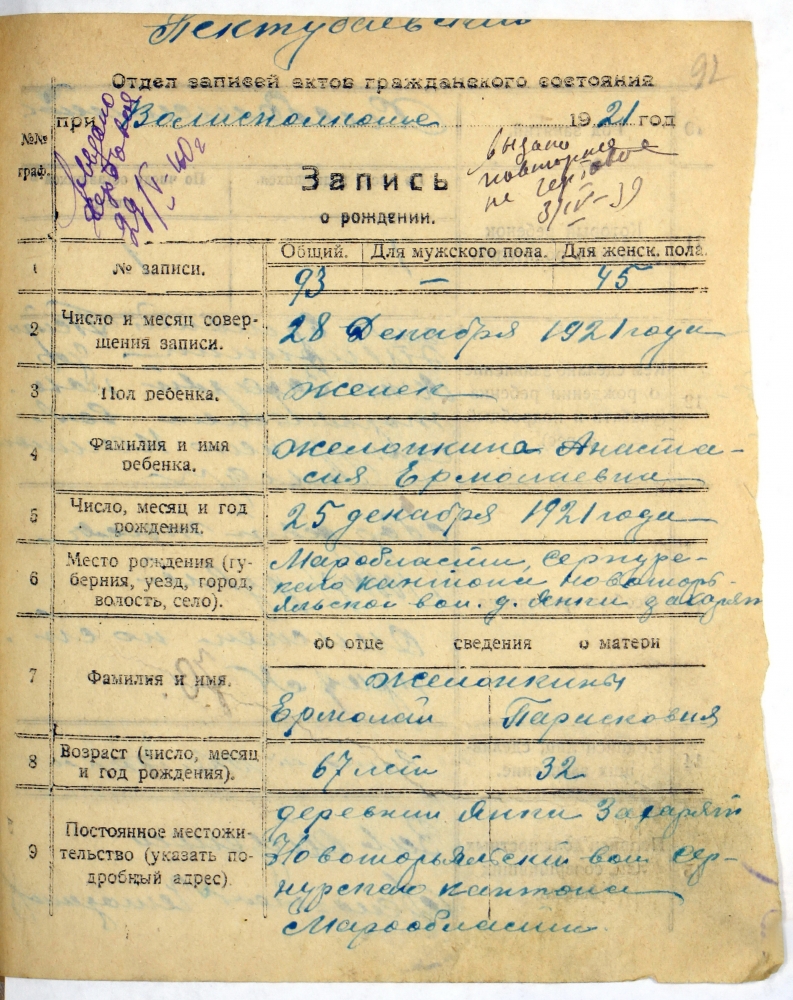 Пектубаевский
92
Отдел записей актов гражданского состояния
при Волисполкоме 1921 год
29/V 40 г
выдано
повторное
не гербовое
3/IV-39
№№
граф.
Запись
о рождении.
Общий. Для мужского пола. Для женск. пола.
1 № записи. 93 — 45
2 Число и месяц совер-
шения записи. 28 Декабря 1921 года
3 Пол ребенка. женск
4 Фамилия и имя
ребенка. Желонкина Анаста-
сия Ермолаевна
5 Число, месяц и год
рождения. 25 декабря 1921 года
6 Место рождения (гу-
берния, уезд, город,
волость, село). Маробласти, Сернурс-
кого кантона Новоторъ-
яльской вол. д. Янки Захарят
об отце сведения о матери
7 Фамилия и имя. Желонкины
Ермолай Парасковия
8 Возраст (число, месяц
и год рождения). 67 лет 32
9 Постоянное местожи-
тельство (указать по-
дробный адрес). деревни Янки Захарят
Новоторъяльский вол Сер-
нурскаго кантона
Маробласти